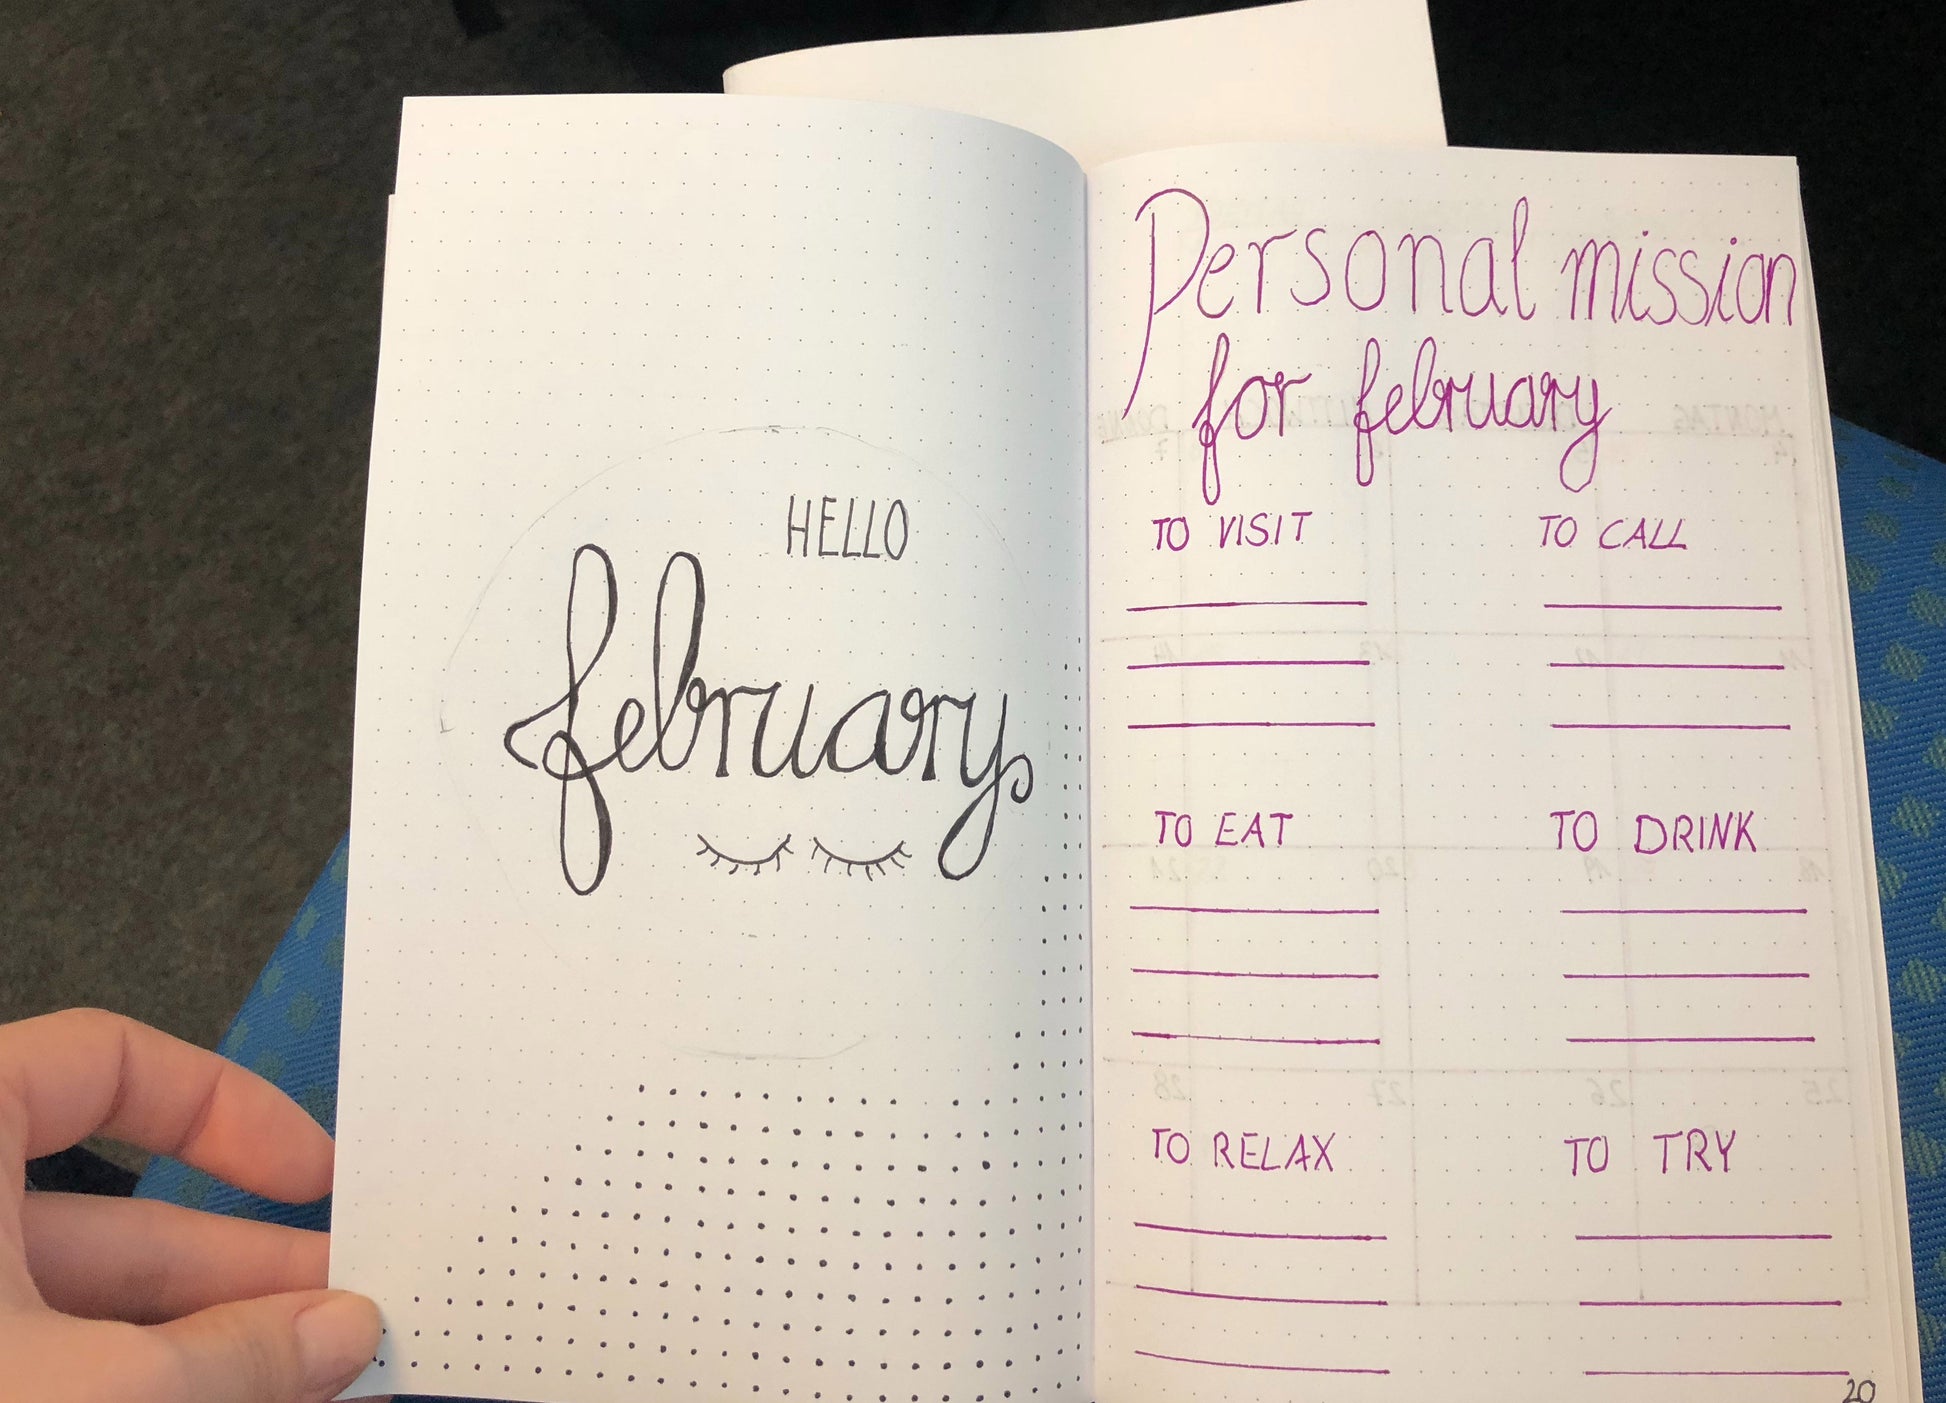 HELLO
february
Personal mission
for february
TO VISIT
TO CALL
TO EAT
TO DRINK
TO RELAX
TO TRY
20